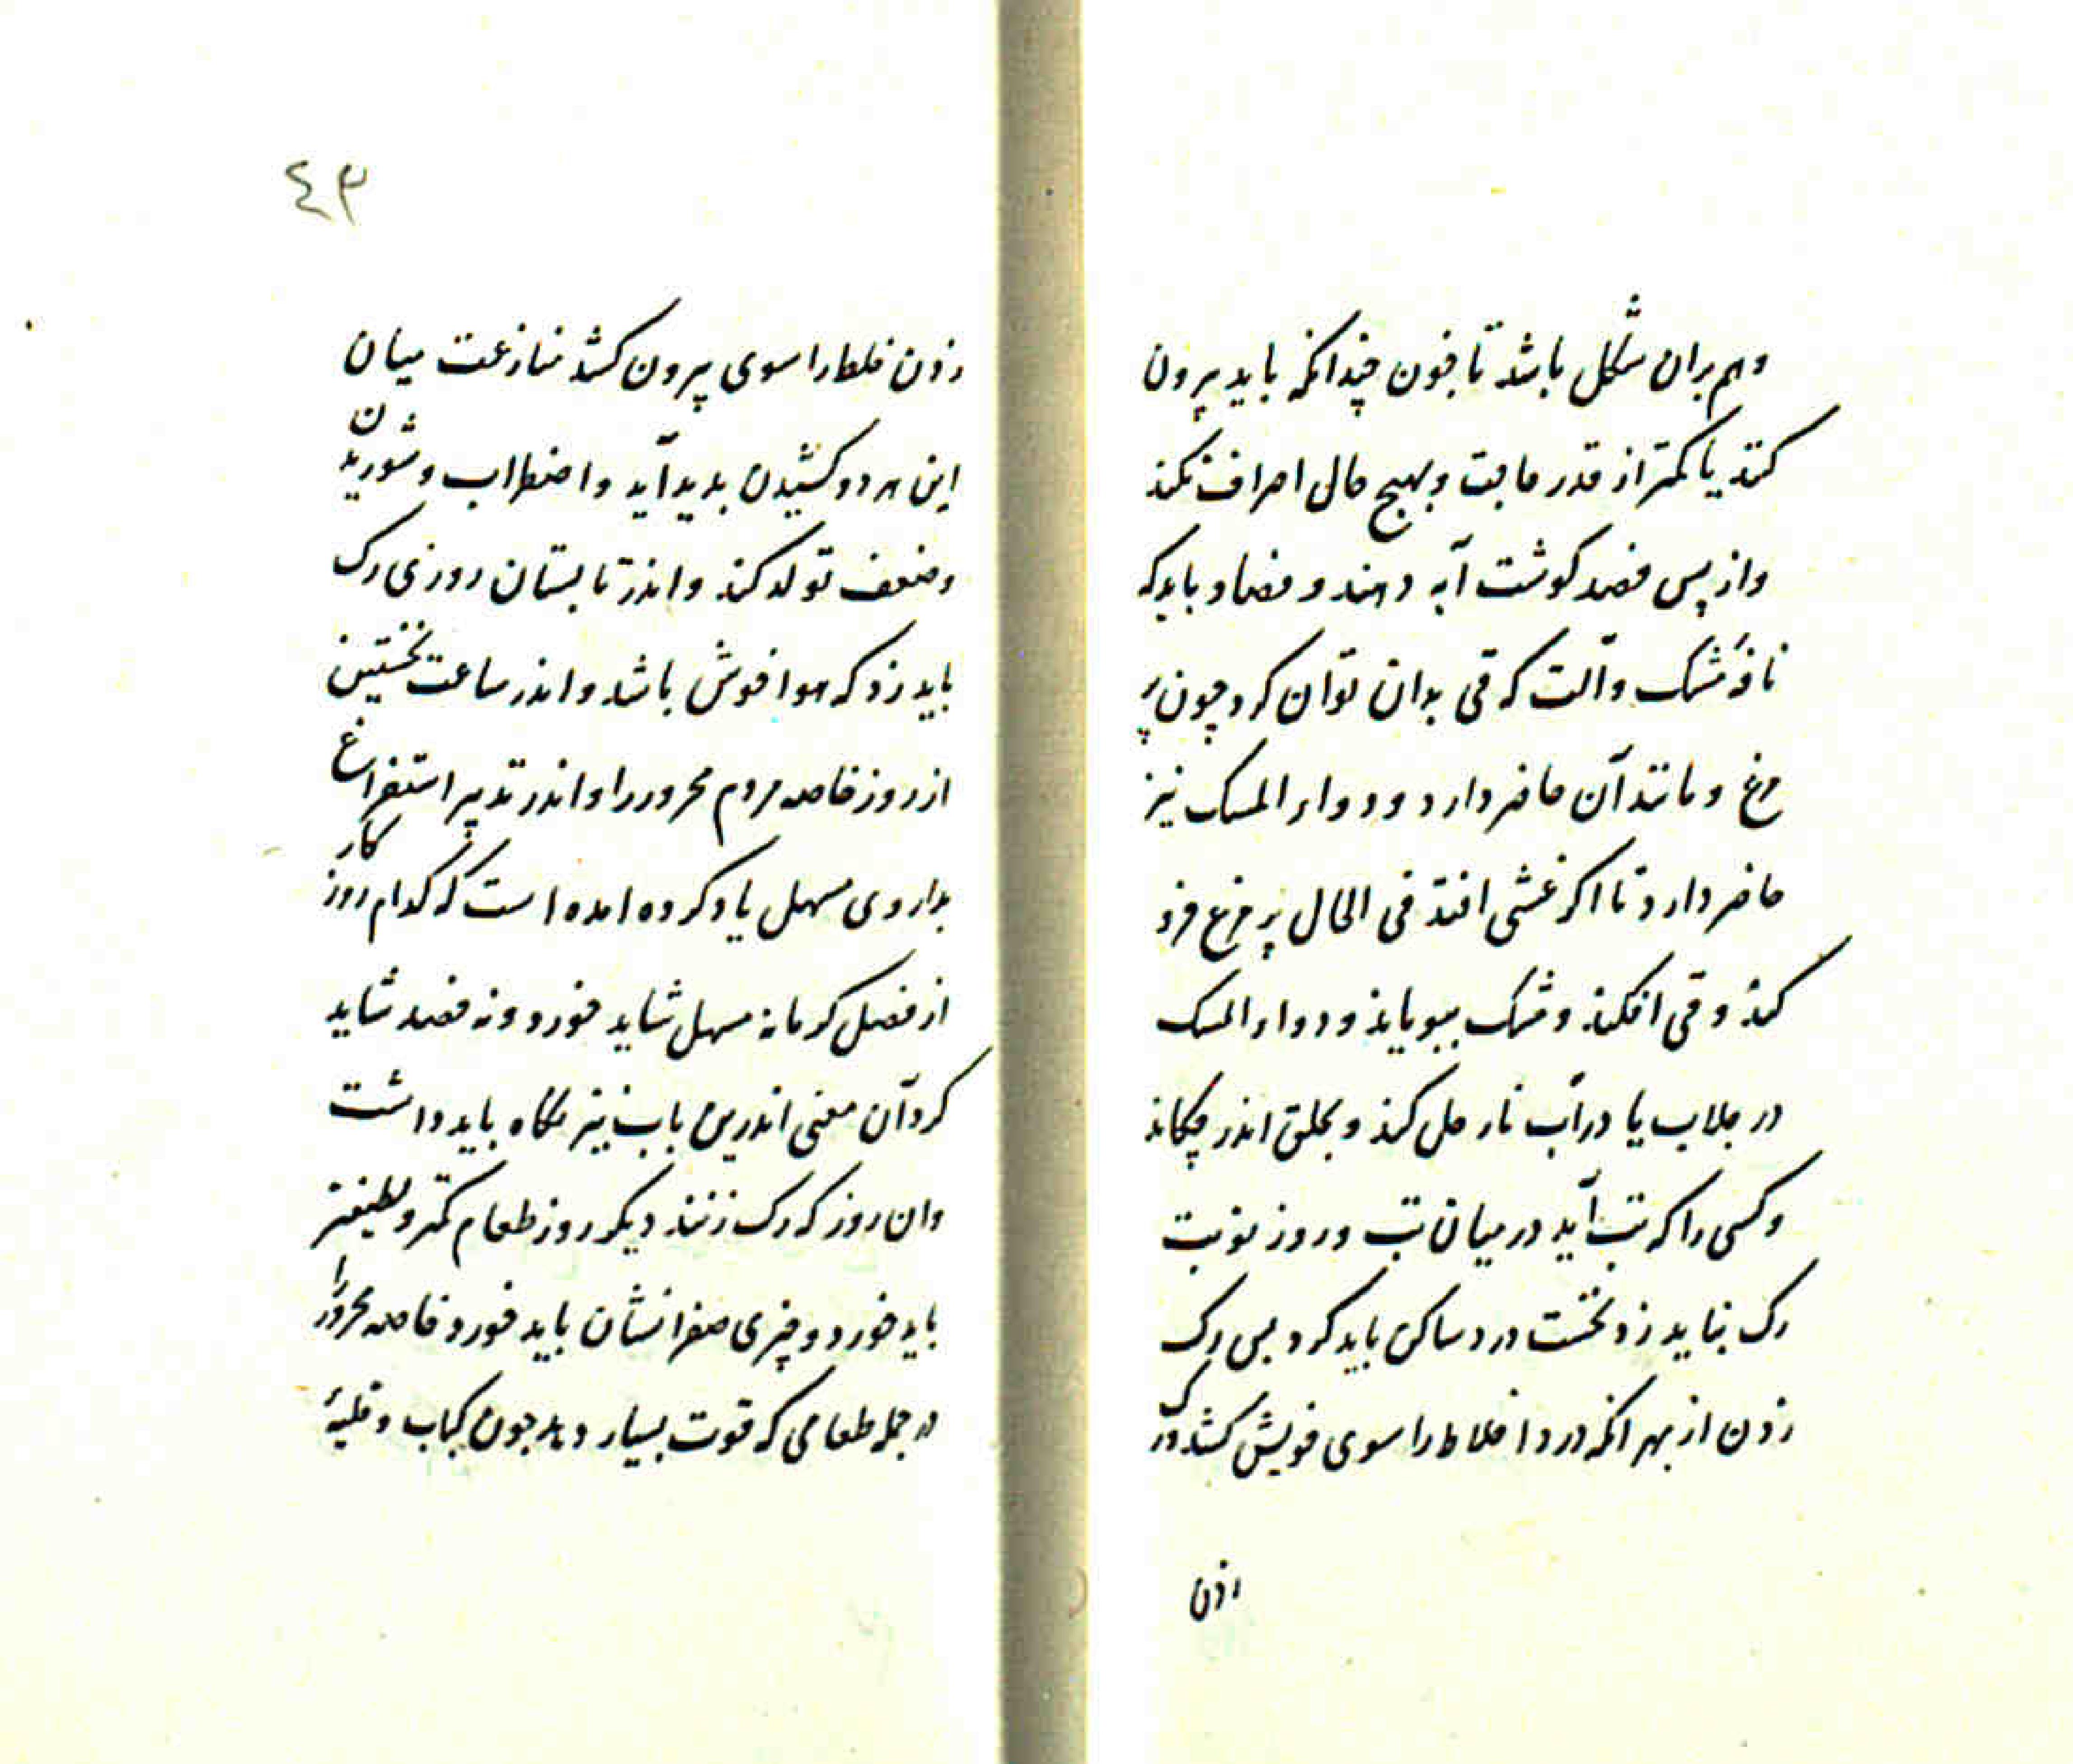 وهم بران شکل باشد تا خون چندانکه باید بیرون
کند یا کمتر از قدر حاجت و بهیچ حال اسراف نکند
و از پس فصد کوشت آبه دهند و فصاد باید که
نافهٔ مشک و آلت که قی بدان توان کرد چون پر
مرغ و مانند آن حاضر دارد و دواء المسک نیز
حاضر دارد تا اکر غشی افتد فی الحال پر مرغ فرو
کند و قی افکند و مشک ببویاند و دواء المسک
در جلاب یا در آب نار حل کند و بحلق اندر چکاند
و کسی را که تب آید در میان تب و روز نوبت
رک نباید زد نخست درد ساکن باید کرد بس رک
زدن از بهر انکه درد اخلاط را سوی خویش کشد و رک
زدن
٤٣
زدن خلط را سوی بیرون کشد منازعت میان
این هر دو کشیدن بدید آید و اضطراب و شوریدن
و ضعف تولد کند و اندر تابستان روزی رک
باید زد که هوا خوش باشد و اندر ساعت نخستین
از روز خاصه مردم محرور را و اندر تدبیر استفراغ
بداروی مسهل یاد کرده امده است که کدام روز کار
از فصل کرما نه مسهل شاید خورد و نه فصد شاید
کرد آن معنی اندرین باب نیز نکاه باید داشت
وان روز که رک زنند دیکر روز طعام کمتر و لطیفتر
باید خورد و چیزی صفرا نشان باید خورد خاصه محرور را
در جمله طعامی که قوت بسیار دهد جون کباب و قلیهٔ